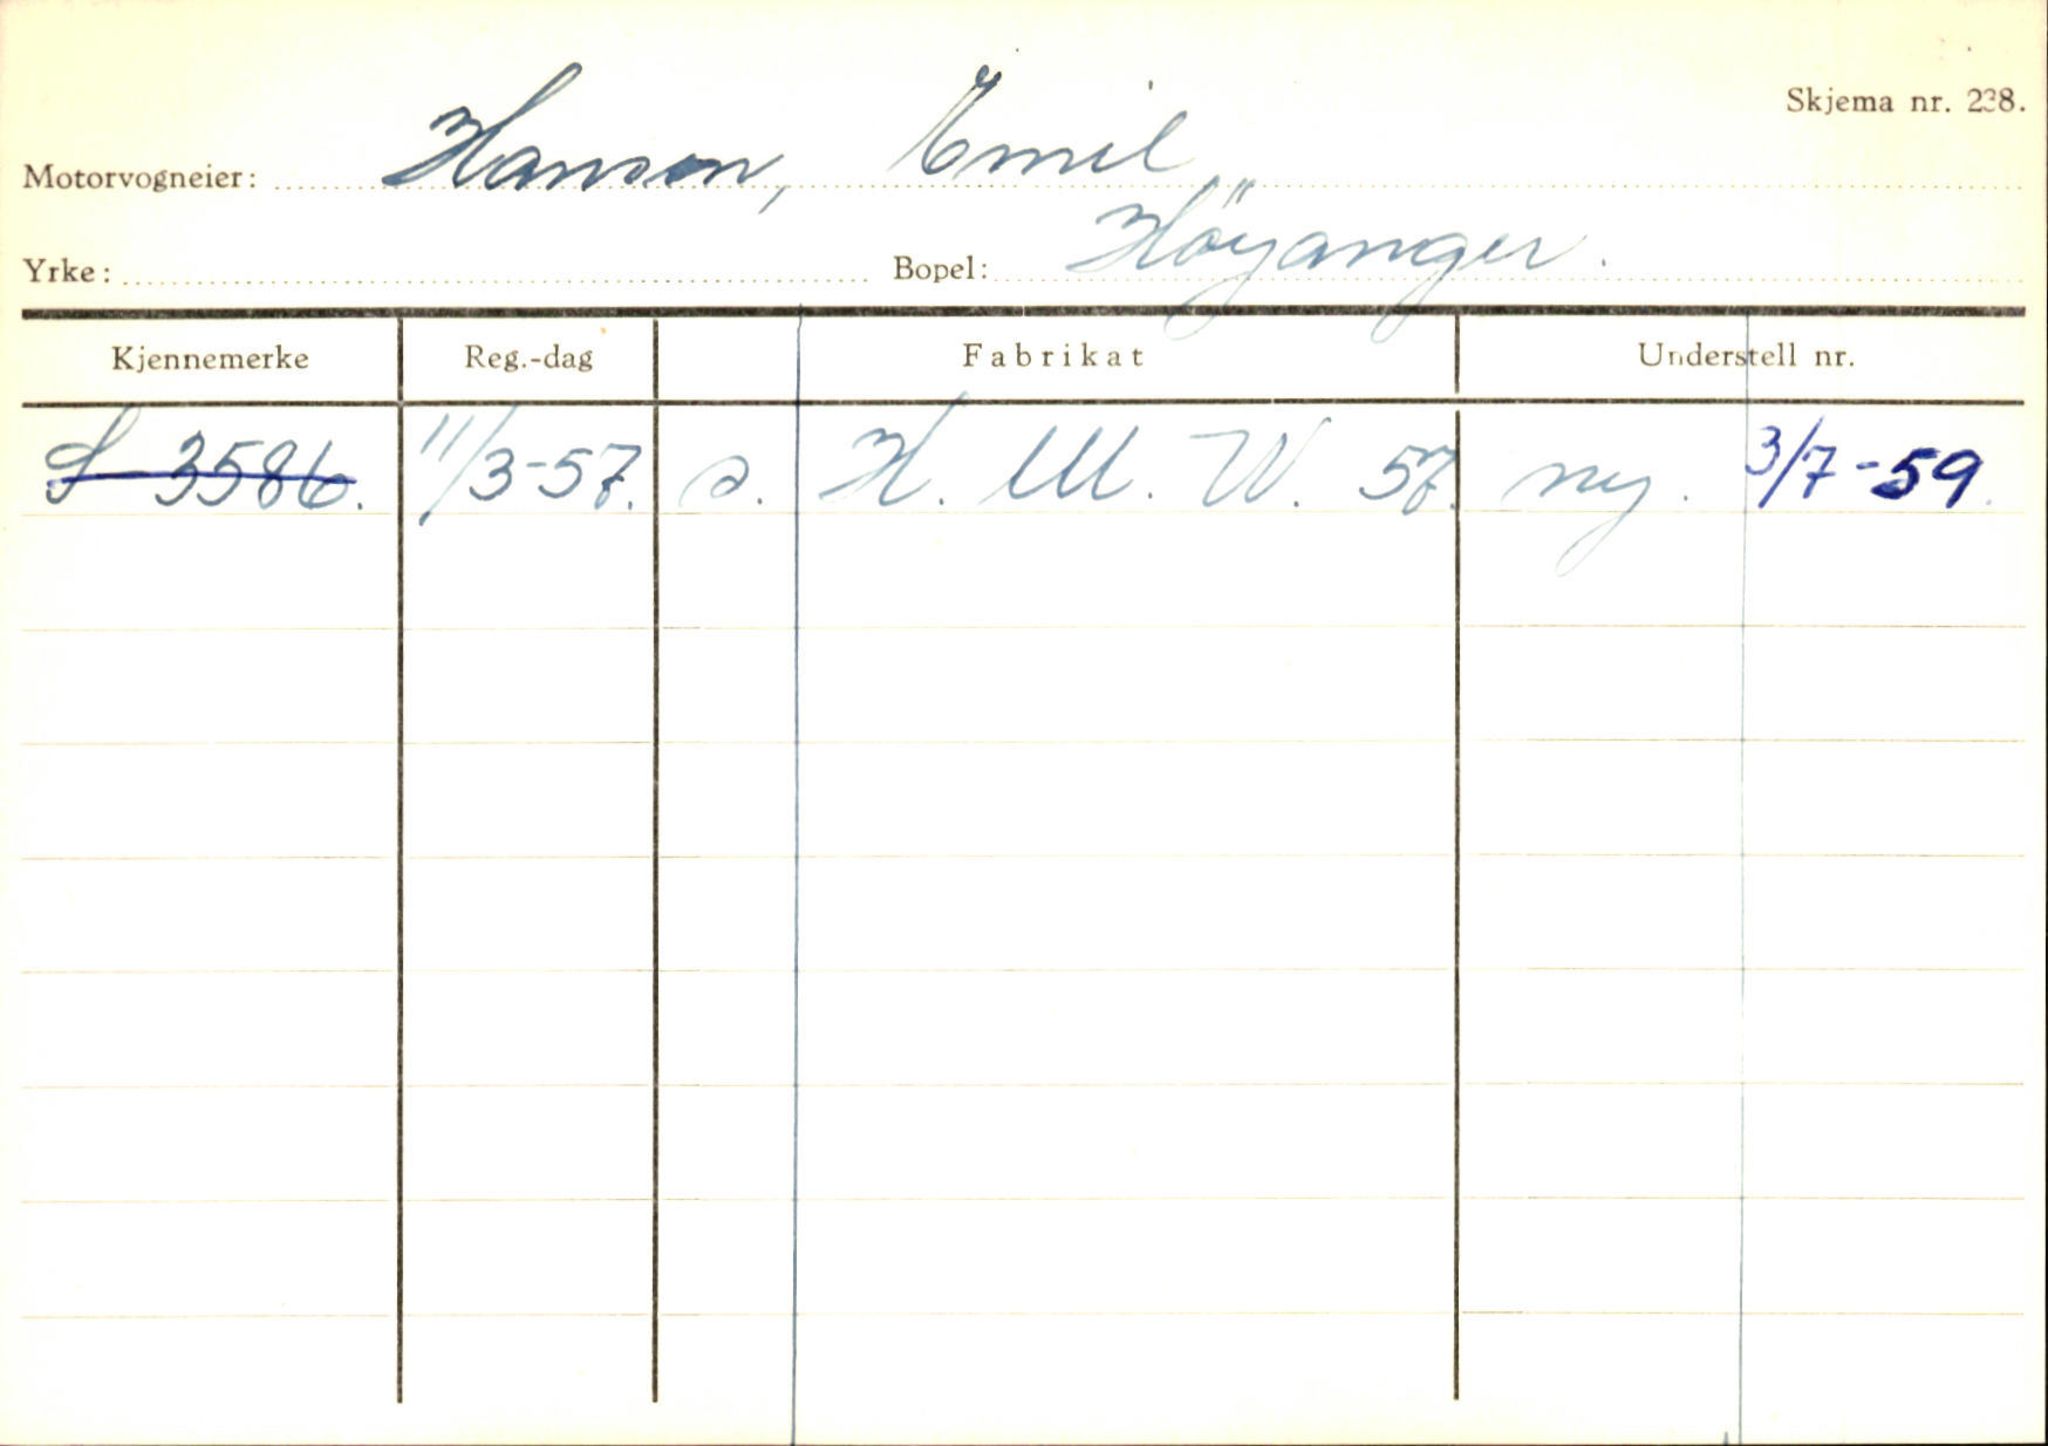 Skjema nr. 238.
Motorvogneier: Hanson, Emil
Yrke: Bopel: Höyanger.
Kjennemerke Reg.-dag Fabrikat Understell nr.
S 3586. 11/3-57. s. H. M. W. 57. ny. 3/7-59.